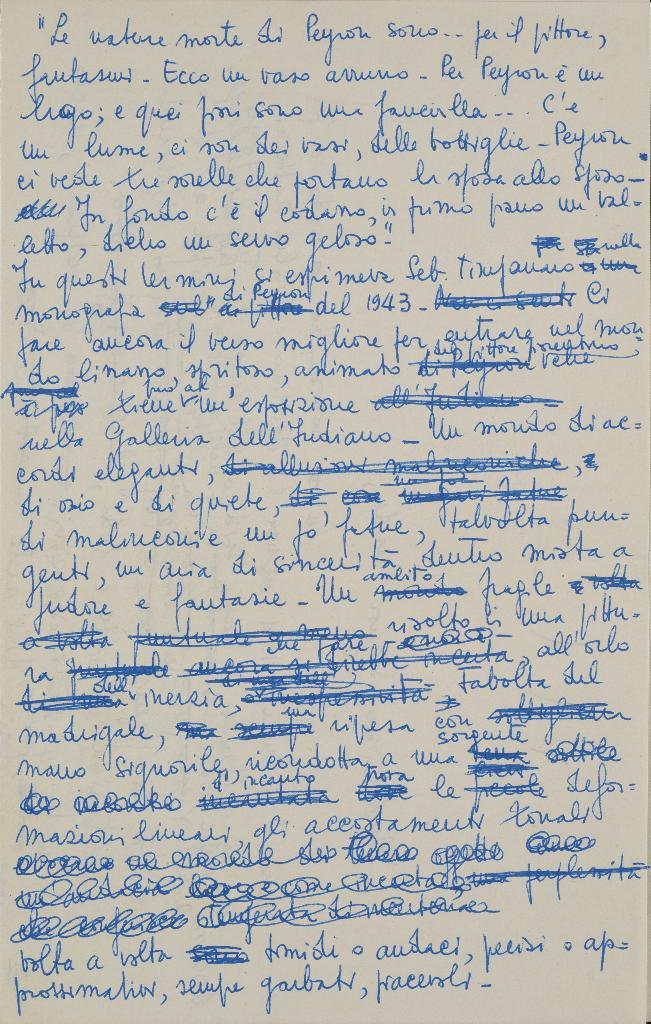 "Le nature morte di Peyron sono -- per il pittore,
fantasmi - Ecco un vaso avanno - Per Peyron è un
lago; e quei fiori sono una fanciulla --- C'è
un lume, ci son dei vasi, delle bottiglie - Peyron
ci vede tre sorelle che portano la sposa allo sposo -
In fondo c'è il codazzo, in primo piano un val=
letto, dietro un servo geloso"-
In questi termini si esprimeva Seb. Timpanaro nella
monografia di Peyron del 1943 - Ci
pare ancora il verso migliore per entrare nel mon=
do umano, spiritoso, animato del pittore fiorentino, che
tiene un'esposizione
nella Galleria dell'Indiano - Un mondo di ac=
cordi eleganti,
di ozio e di quiete,
di malinconie un po' fatue, talvolta pun=
genti, un'aria di sincerità dentro mista a
pudore e fantasie - Un ambito fragile
risolto in una pittu=
ra all'orlo
dell'inerzia, talvolta del
madrigale, ma ripresa con
mano signorile, ricondotta a una sorgente
d'incanto le defor=
mazioni lineari, gli accostamenti tonali
volta a volta timidi o audaci, precisi o ap=
prossimativi, sempre garbati, piacevoli -